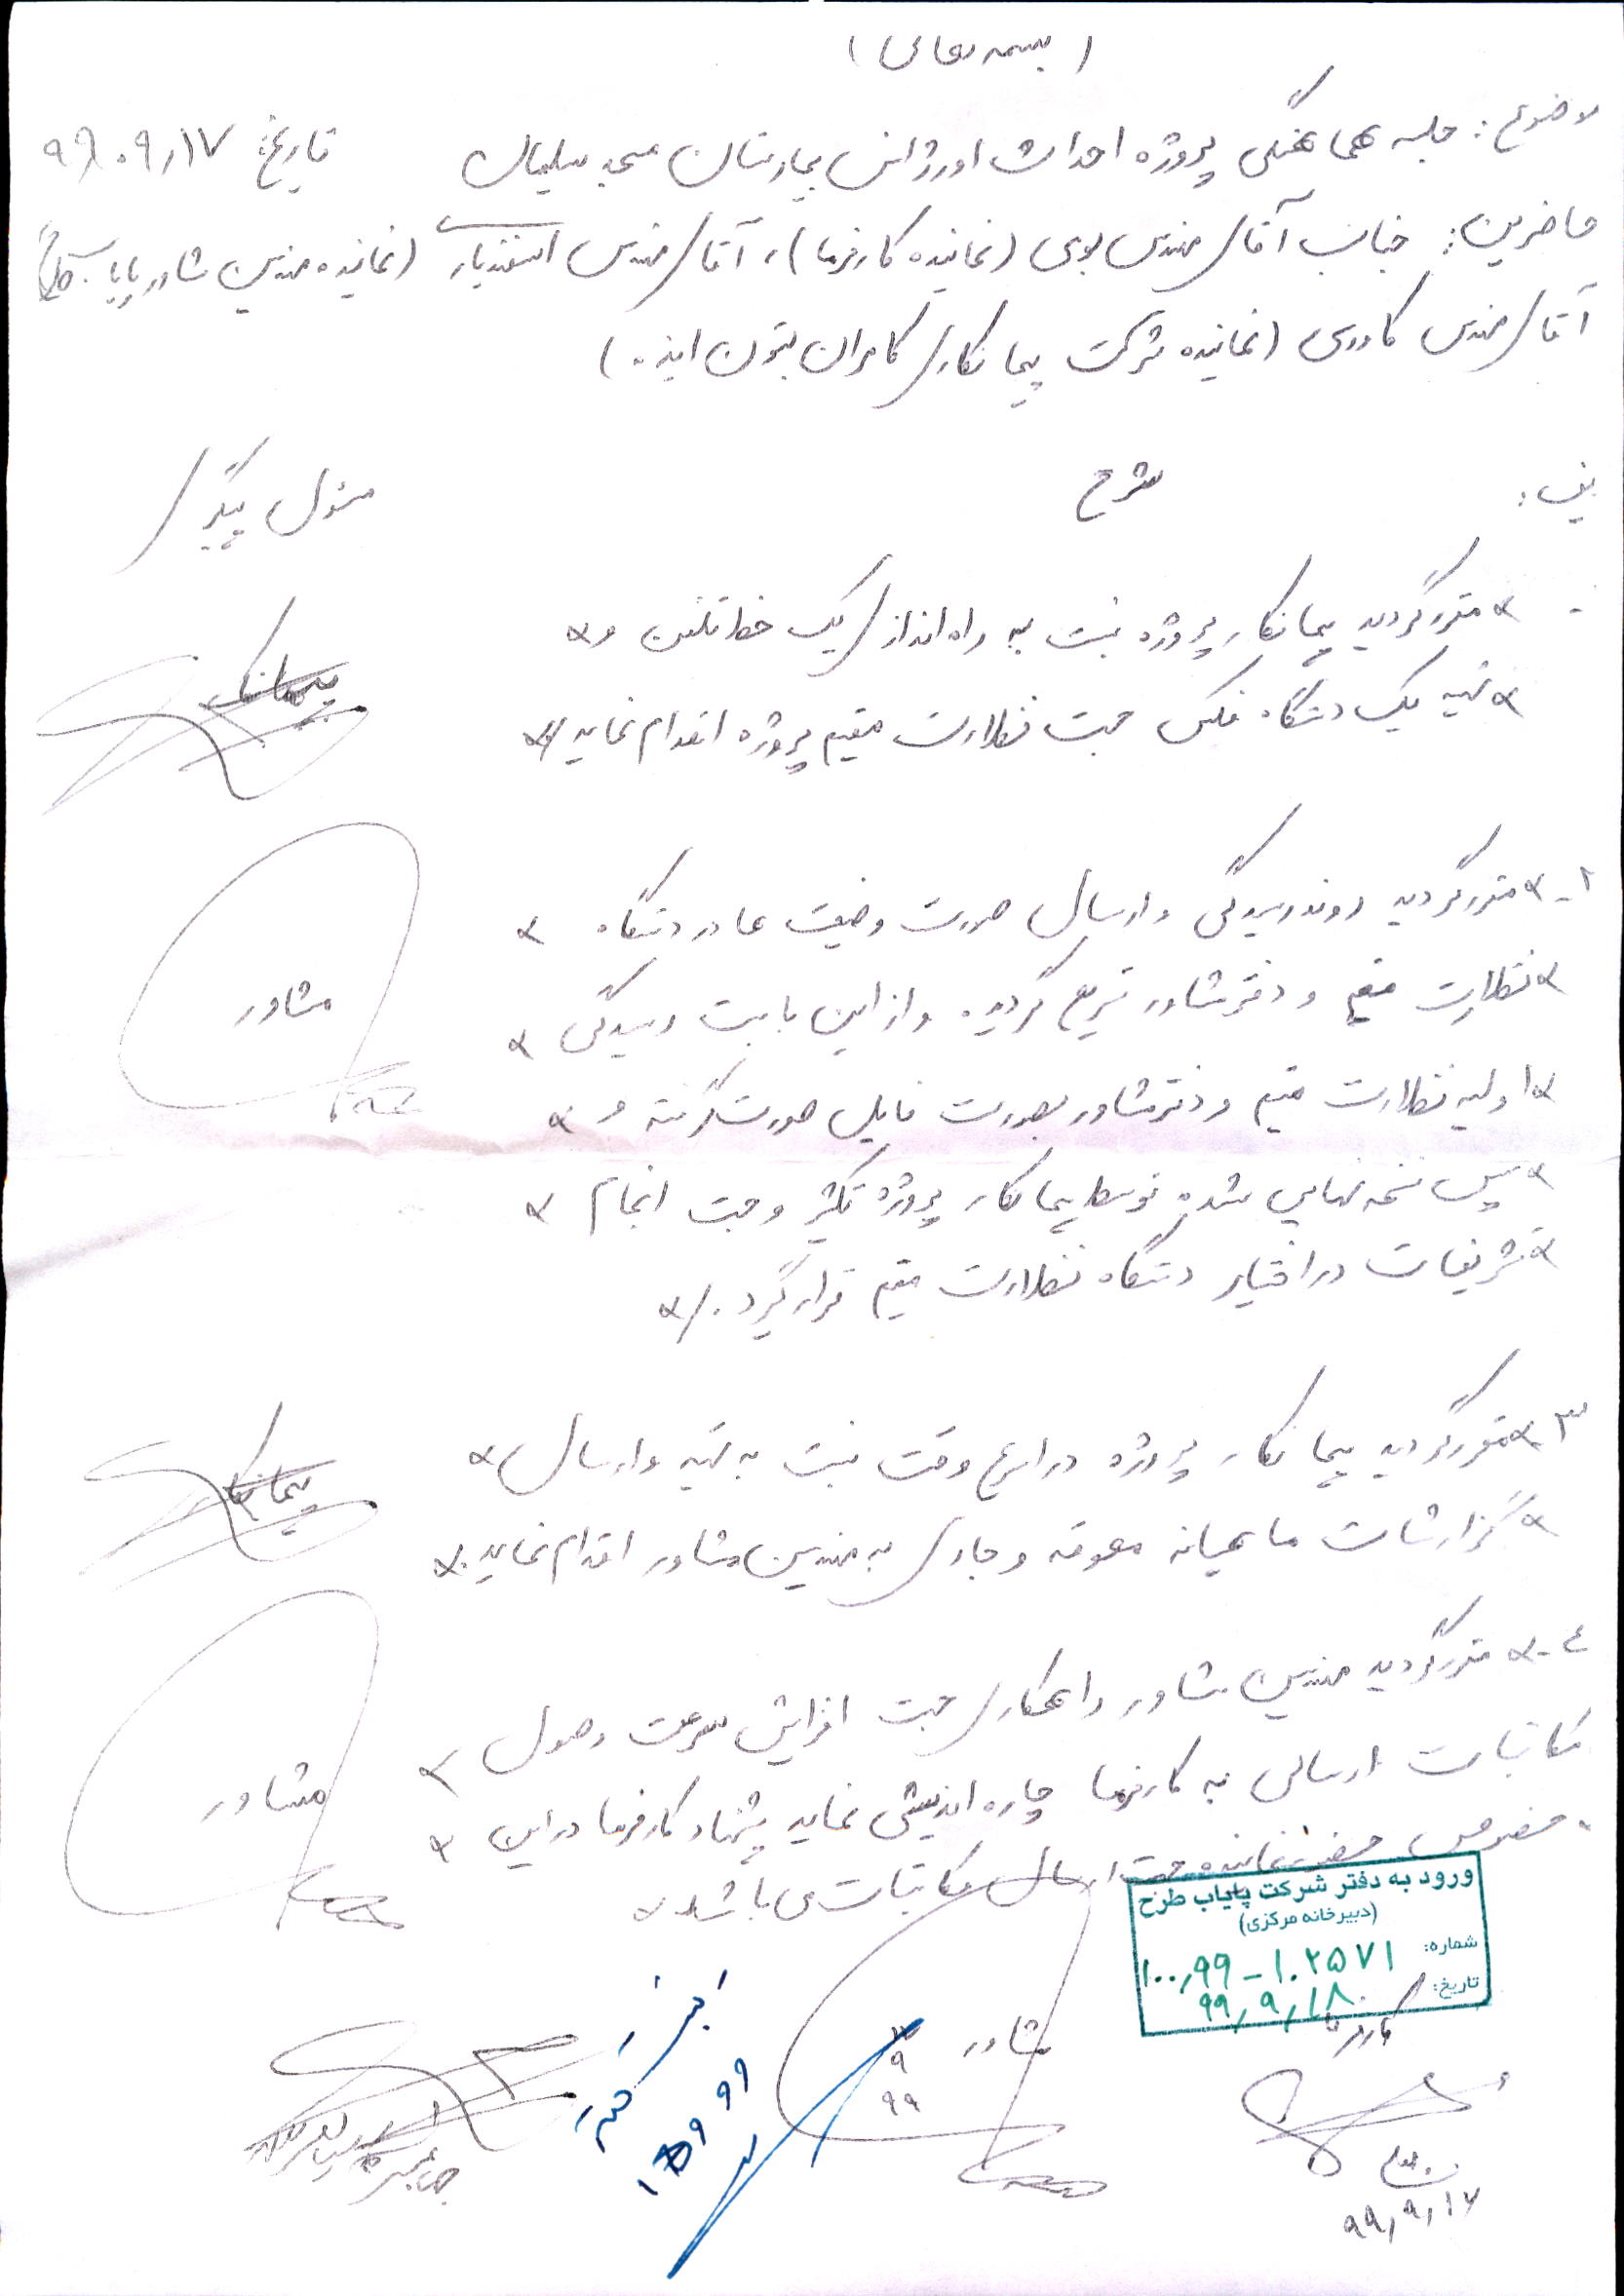 (بسمه تعالی)
موضوع: جلسه هماهنگی پروژه احداث اورژانس بیمارستان مسجد سلیمان تاریخ: ۹۹،۰۹،۱۷
حاضرین: جناب آقای مهندس (نماینده کارفرما)، آقای مهندس اسفندیاری (نماینده مهندسین مشاور پایاب
آقای مهندس کاوری (نماینده شرکت پیمانکاری کامران بتون ایذه.)
یف: شرح مسئول پیگیری
مقرر گردید پیمانکار پروژه نسبت به راه اندازی یک خط تلفن و
تهیه یک دستگاه فکس جهت نظارت مقیم پروژه اقدام نماید
پیمانکار
۲- مقرر گردید روند رسیدگی و ارسال صورت وضیعت ها در دستگاه
نظارت مقیم و دفتر مشاور تسریع گردیده و از این بابت رسیدگی
مشاور
اولیه نظارت مقیم و دفتر مشاور بصورت فایل صورت گرفته و
سپس نسخه نهایی شده توسط پیمانکار پروژه تکثیر و جهت انجام
تشریفات در اختیار دستگاه نظارت مقیم قرار گیرد./
۳- مقرر گردید پیمانکار پروژه در اسرع وقت نسبت به تهیه و ارسال
پیمانکار
گزارشات ماهیانه معوقه و جاری به مهندسین مشاور اقدام نماید.
۴- مقرر گردید مهندسین مشاور راهکاری جهت افزایش سرعت وصول
مکاتبات ارسالی به کارفرما چاره اندیشی نماید پیشنهاد کارفرما در این
مشاور
خصوص حضور نماینده جهت ارسال مکاتبات می باشد
ورود به دفتر شرکت پایاب طرح
(دبیرخانه مرکزی)
شماره: ۱۰۰،۹۹-۱۰۲۵۷۱
تاریخ: ۹۹،۹،۱۸
کارفرما
مشاور
۹
۹۹
۹۹،۹،۱۷